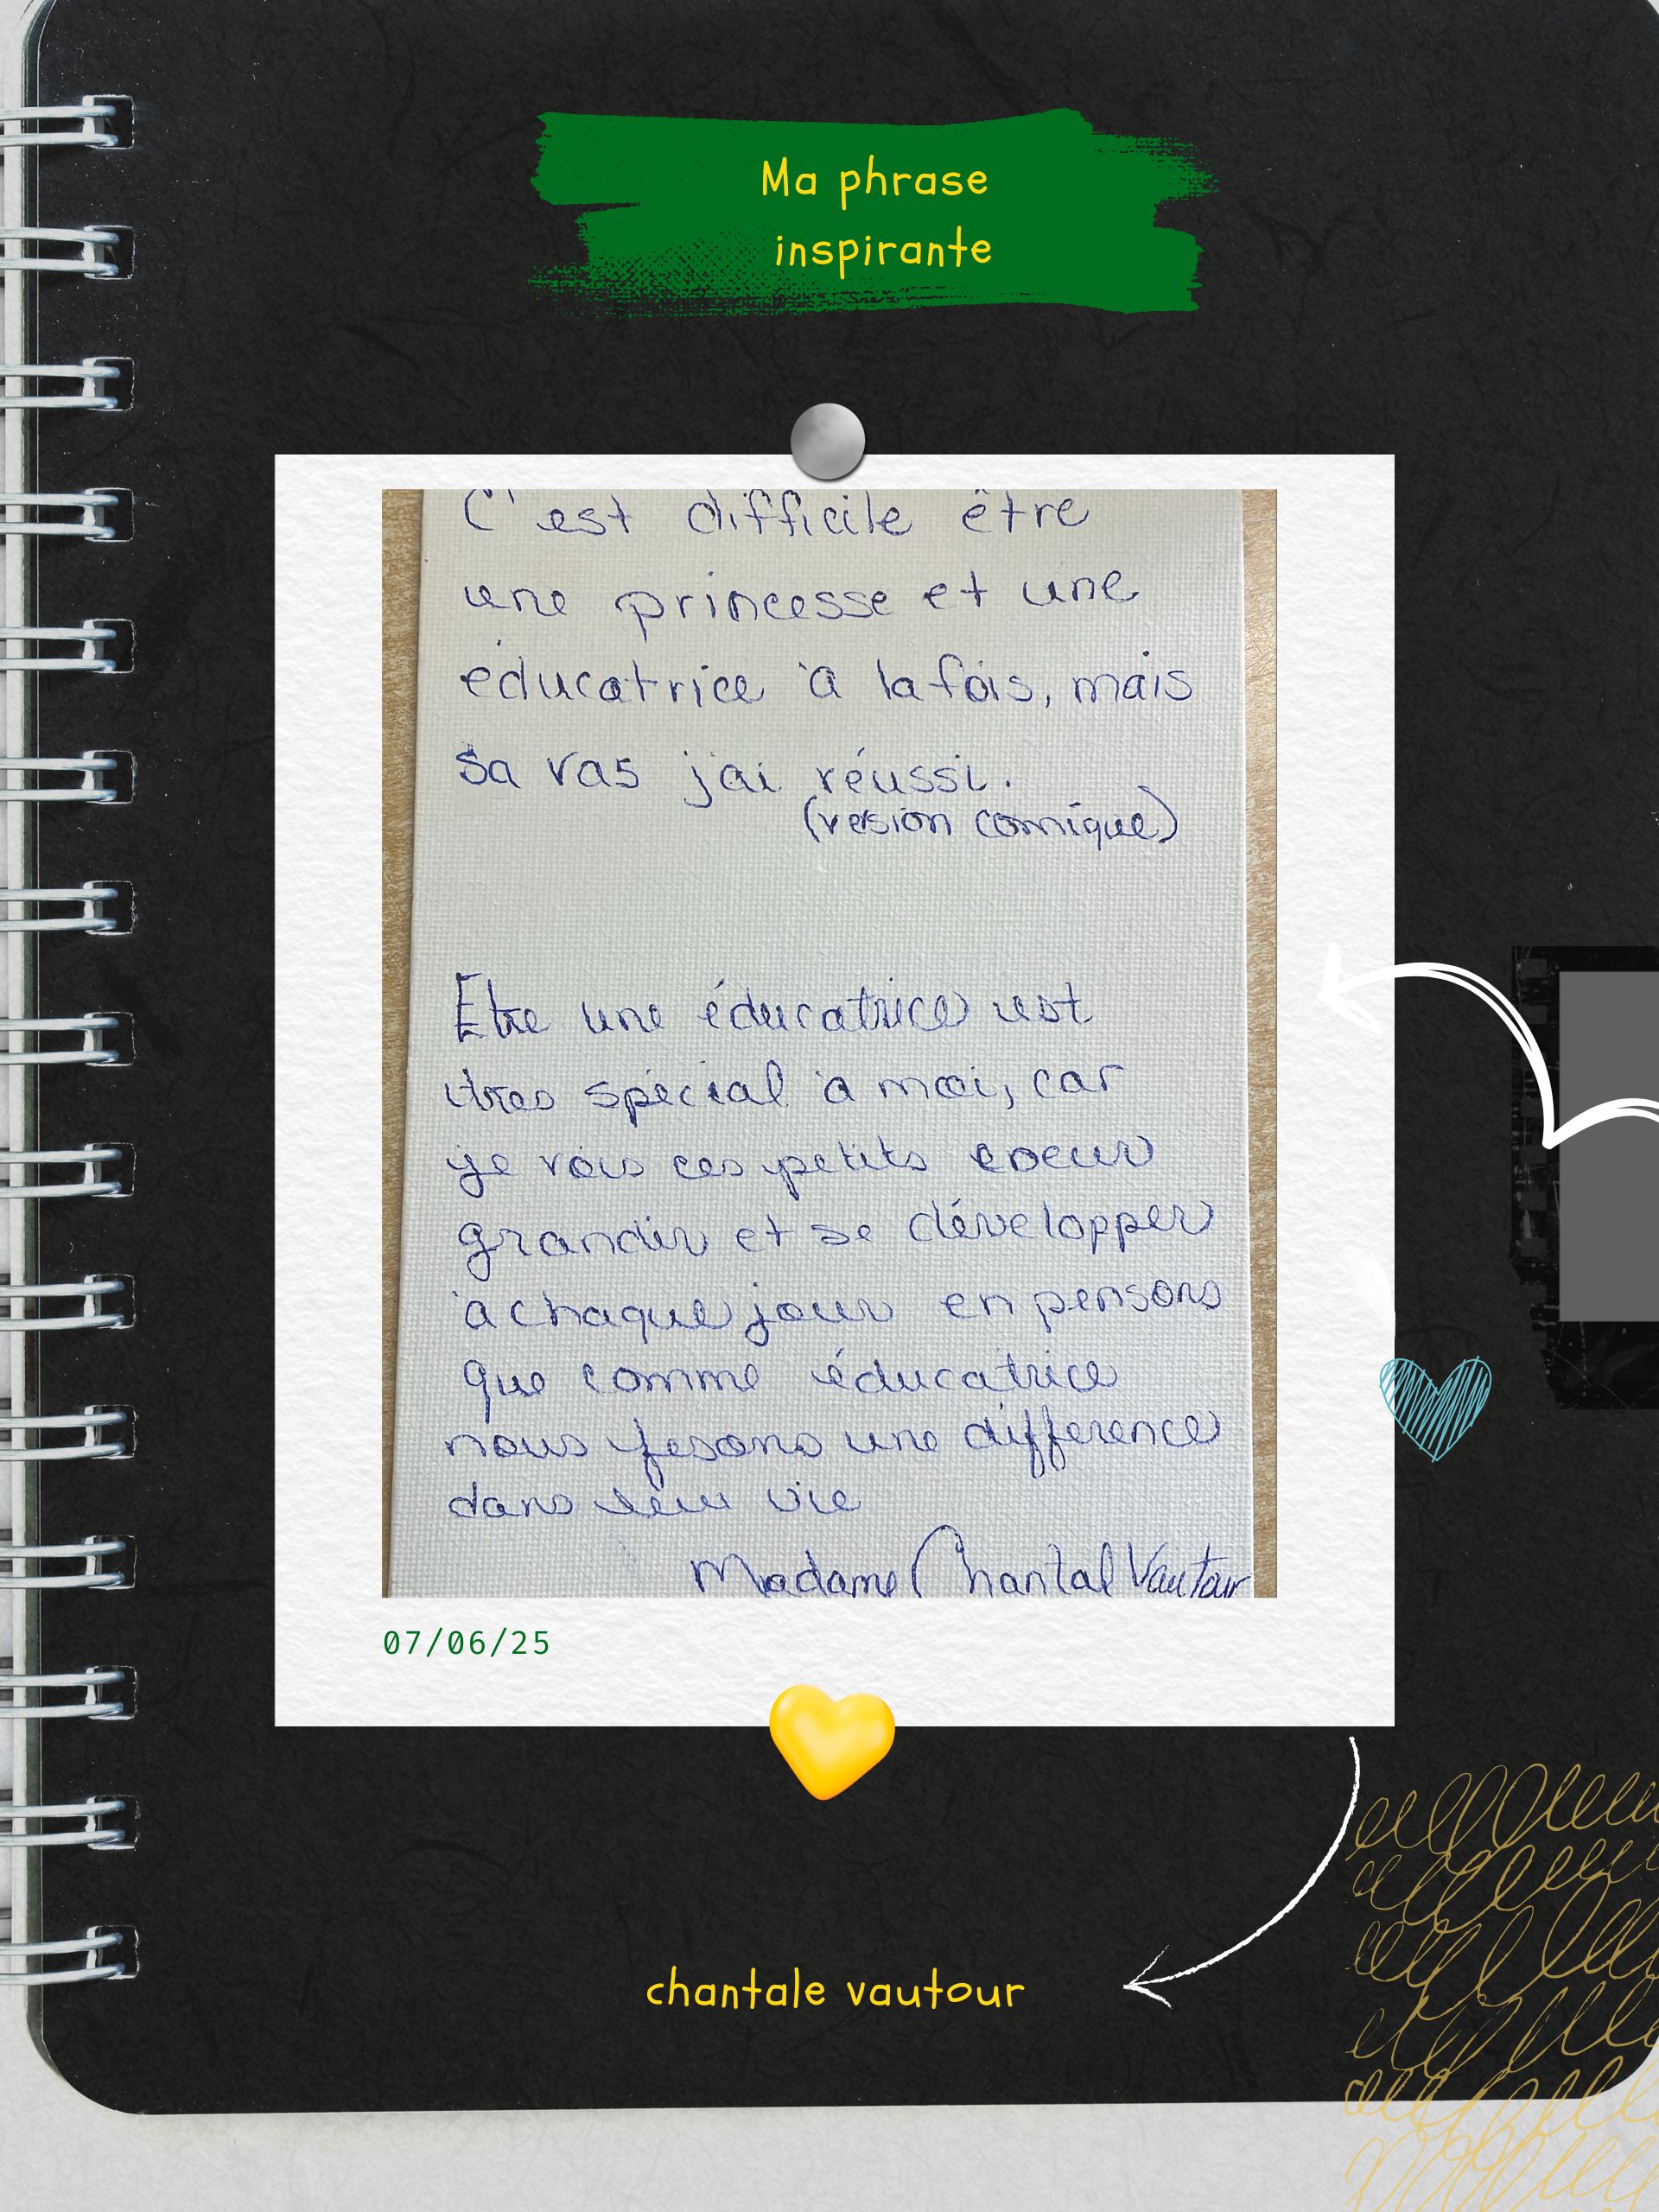 Ma phrase
inspirante
C'est difficile être
une princesse et une
éducatrice à la fois, mais
sa vas j'ai réussi.
(version comique)
Etre une éducatrice est
tres spécial à moi, car
je vois ces petits coeur
grandir et se développer
à chaque jour en pensons
que comme éducatrice
nous fesons une difference
dans leur vie
Madame Chantal Vautour
07/06/25
chantale vautour